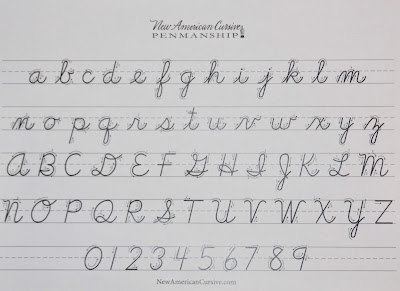 New American Cursive
PENMANSHIP
a b c d e f g h i j k l m
n o p q r s t u v w x y z
A B C D E F G H I J K L M
N O P Q R S T U V W X Y Z
0 1 2 3 4 5 6 7 8 9
NewAmericanCursive.com